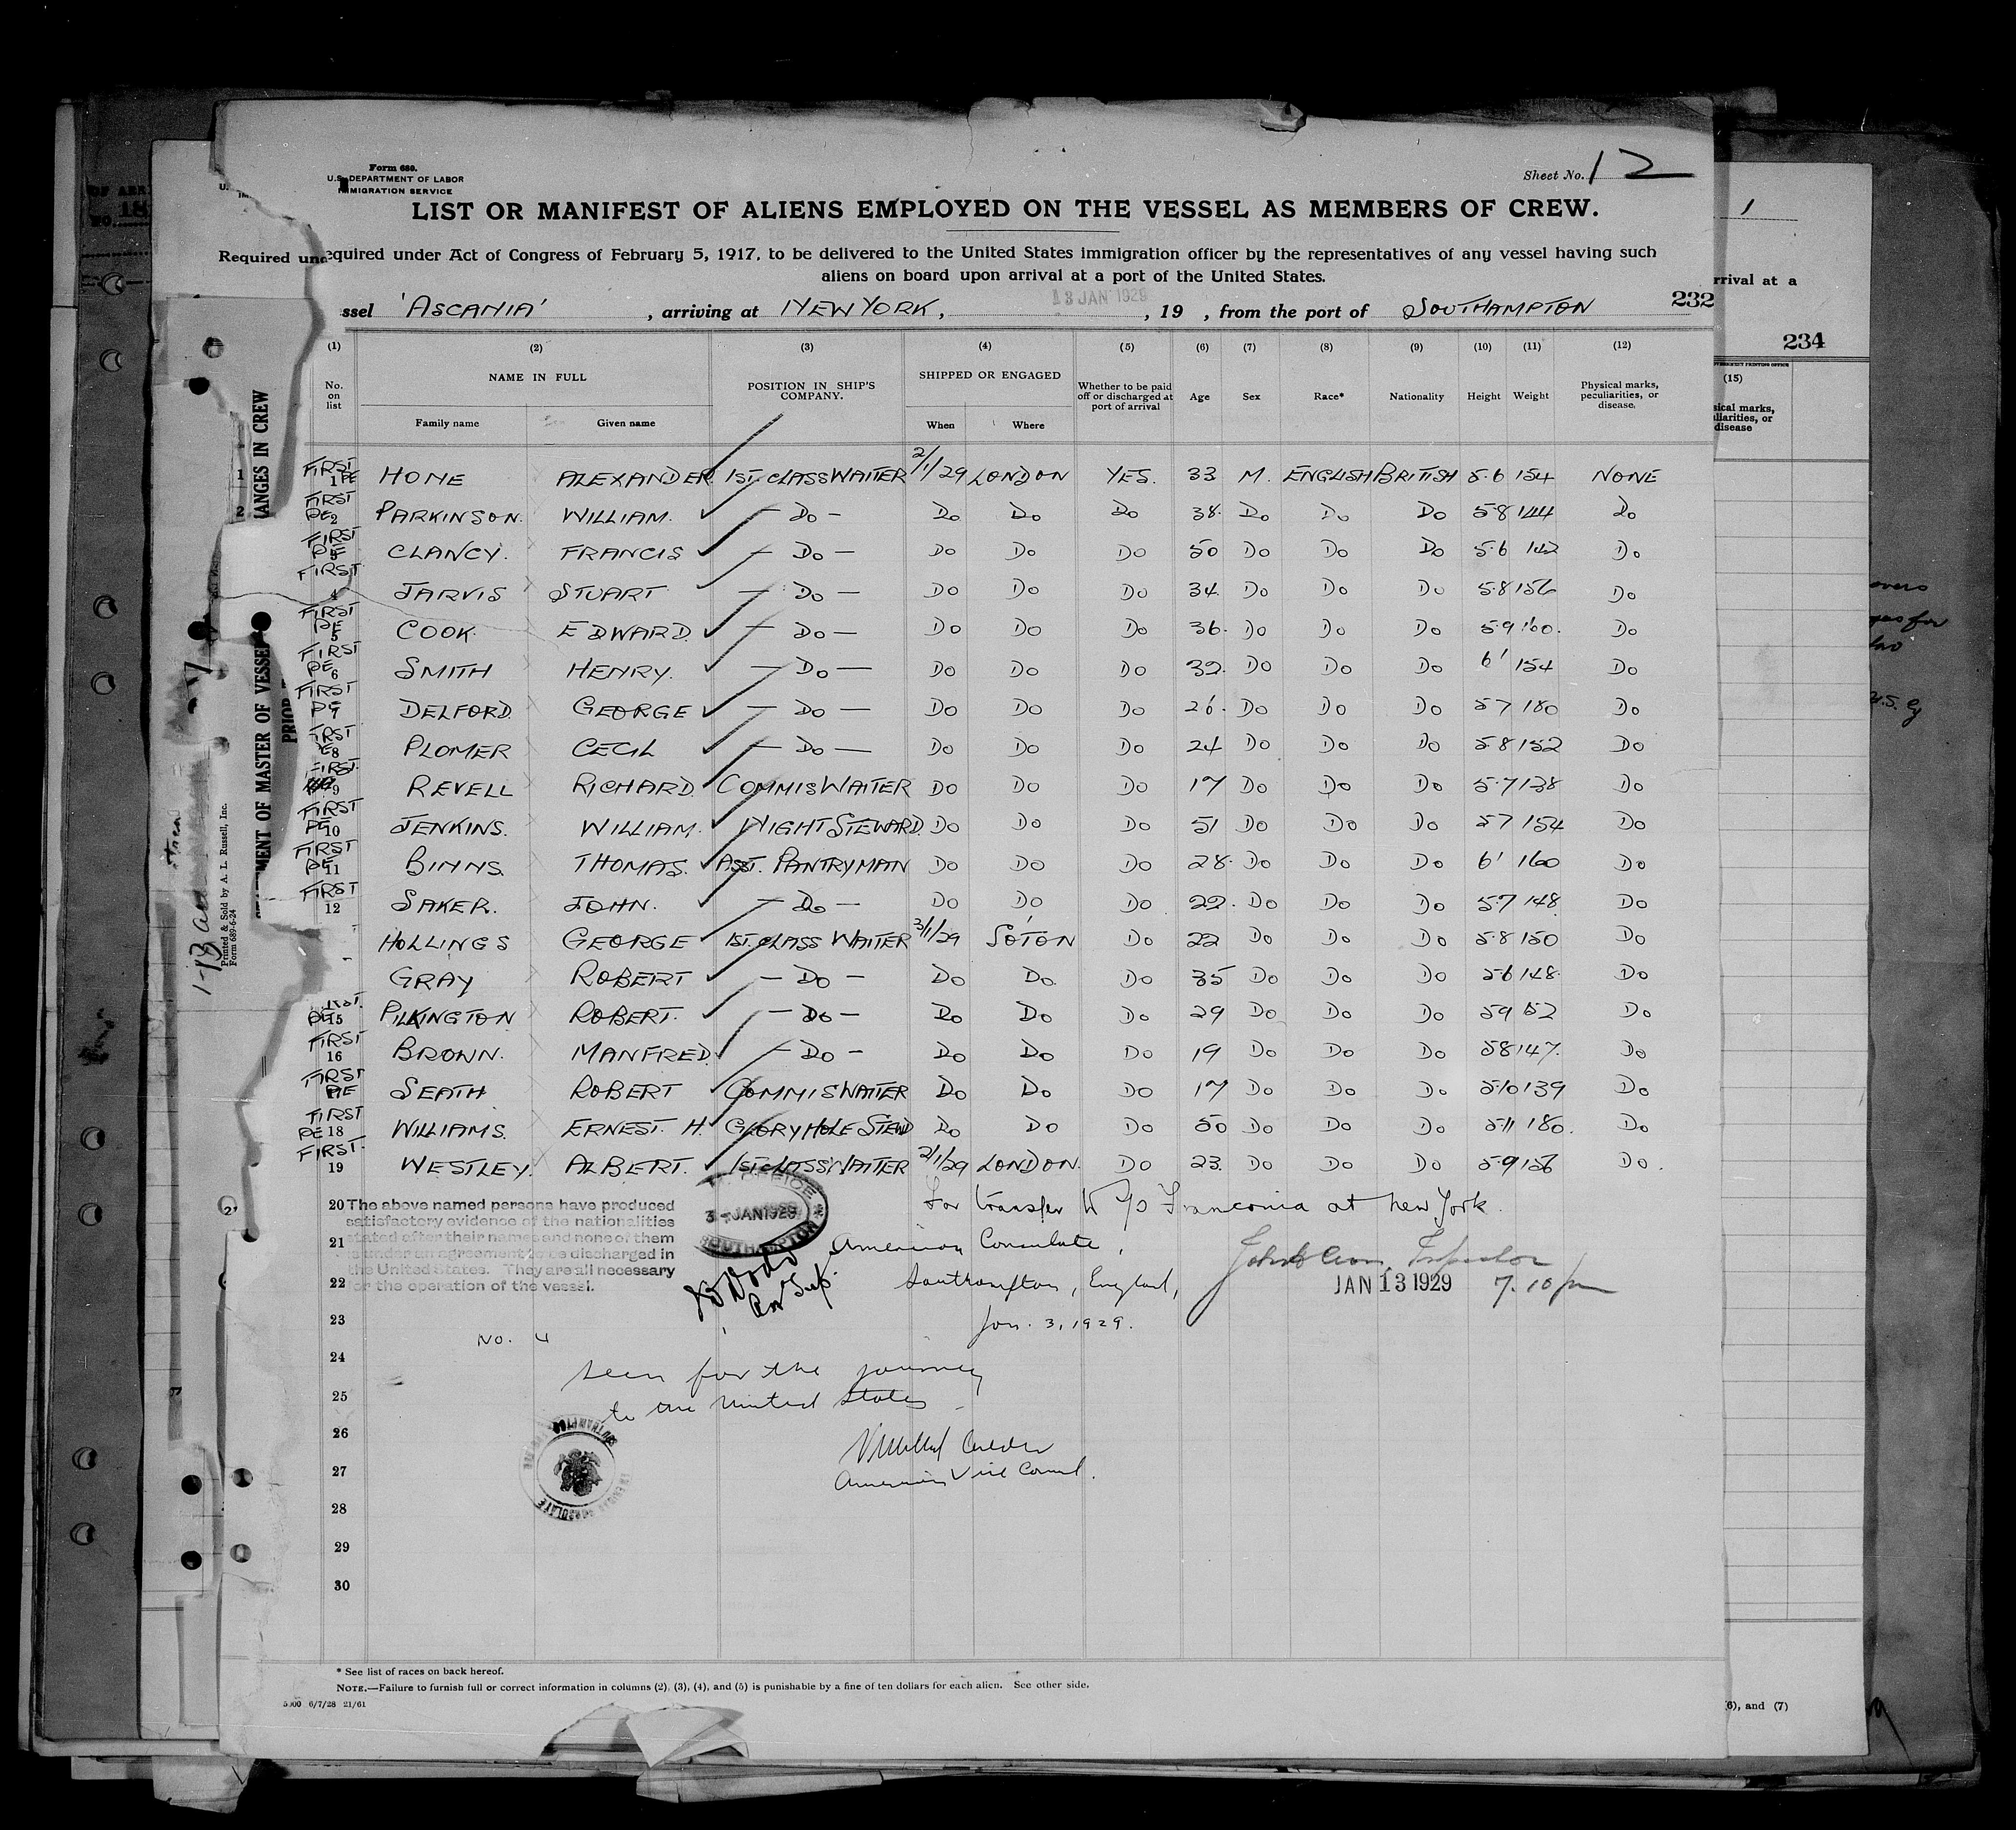 Form 689.
U.S. DEPARTMENT OF LABOR
IMMIGRATION SERVICE
Sheet No. 12
LIST OR MANIFEST OF ALIENS EMPLOYED ON THE VESSEL AS MEMBERS OF CREW.
equired under Act of Congress of February 5, 1917, to be delivered to the United States immigration officer by the representatives of any vessel having such
aliens on board upon arrival at a port of the United States.
ssel 'ASCANIA' , arriving at NEW YORK, 13 JAN 1929 , 19 , from the port of SOUTHAMPTON 232
(1) (2) (3) (4) (5) (6) (7) (8) (9) (10) (11) (12)
No. on list NAME IN FULL Family name Given name POSITION IN SHIP'S COMPANY. SHIPPED OR ENGAGED When Where Whether to be paid off or discharged at port of arrival Age Sex Race* Nationality Height Weight Physical marks, peculiarities, or disease.
FIRST PE 1 HONE ALEXANDER 1ST. CLASS WAITER 2/1/29 LONDON YES. 33 M. ENGLISH BRITISH 5.6 154 NONE
FIRST PE 2 PARKINSON. WILLIAM. - DO - DO DO DO 38. DO DO DO 5-8 144 DO
FIRST PE CLANCY. FRANCIS - DO - DO DO DO 50 DO DO DO 5.6 142 DO
FIRST 4 JARVIS STUART - DO - DO DO DO 34. DO DO DO 5.8 156 DO
FIRST PE 5 COOK. EDWARD. - DO - DO DO DO 36. DO DO DO 59 160. DO
FIRST PE 6 SMITH HENRY. - DO - DO DO DO 32. DO DO DO 6' 154 DO
FIRST PE 7 DELFORD. GEORGE - DO - DO DO DO 26. DO DO DO 57 180 DO
8 PLOMER CECIL - DO - DO DO DO 24 DO DO DO 5.8 152 DO
FIRST. 9 REVELL RICHARD. COMMIS WAITER DO DO DO 17 DO DO DO 5.7 138 DO
FIRST PE 10 JENKINS. WILLIAM. NIGHT STEWARD. DO DO DO 51 DO DO DO 57 154 DO
FIRST PE 11 BINNS. THOMAS. ASST. PANTRYMAN DO DO DO 28. DO DO DO 6' 160 DO
FIRST 12 SAKER. JOHN. - DO - DO DO DO 22. DO DO DO 5.7 148 DO
HOLLINGS GEORGE 1ST. CLASS WAITER 3/1/29 SOTON DO 22 DO DO DO 5.8 150 DO
GRAY ROBERT - DO - DO DO. DO 35 DO DO DO 5.6 148. DO
PE 15 PILKINGTON ROBERT. - DO - DO DO DO 29 DO DO DO 59 152 DO
FIRST 16 BROWN. MANFRED. - DO - DO DO DO 19 DO DO DO 58 147. DO
FIRST PE SEATH ROBERT COMMIS WAITER DO DO DO 17 DO DO DO 5.10 139 DO
FIRST PE 18 WILLIAMS. ERNEST. H. GLORY HOLE STEWD DO DO DO 50 DO DO DO 5.11 180. DO
FIRST 19 WESTLEY. ALBERT. 1ST CLASS WAITER 2/1/29 LONDON. DO 23. DO DO DO 5.9 156 DO.
20 The above named persons have produced
satisfactory evidence of the nationalities
stated after their names and none of them
is under an agreement to be discharged in
the United States. They are all necessary
for the operation of the vessel.
OFFICE
3 - JAN 1929
SOUTHAMPTON
For transfer to S/S Franconia at New York.
21
American Consulate,
Inspector
22
Southampton, England,
JAN 13 1929 7.10 pm
23
Jan. 3, 1929.
No. 4
24
seen for the journey
25
to the United States
26
27
American Vice Consul.
28
29
30
* See list of races on back hereof.
NOTE.—Failure to furnish full or correct information in columns (2), (3), (4), and (5) is punishable by a fine of ten dollars for each alien. See other side.
6/7/28 21/61
Required und
ANGES IN CREW
MENT OF MASTER OF VESSEL
PRIOR
Printed & Sold by A. L. Russell, Inc.
Form 689-6-24
1
2
1
rrival at a
234
(15)
sical marks,
liarities, or
disease
(6), and (7)
OF ARR
NO. 18